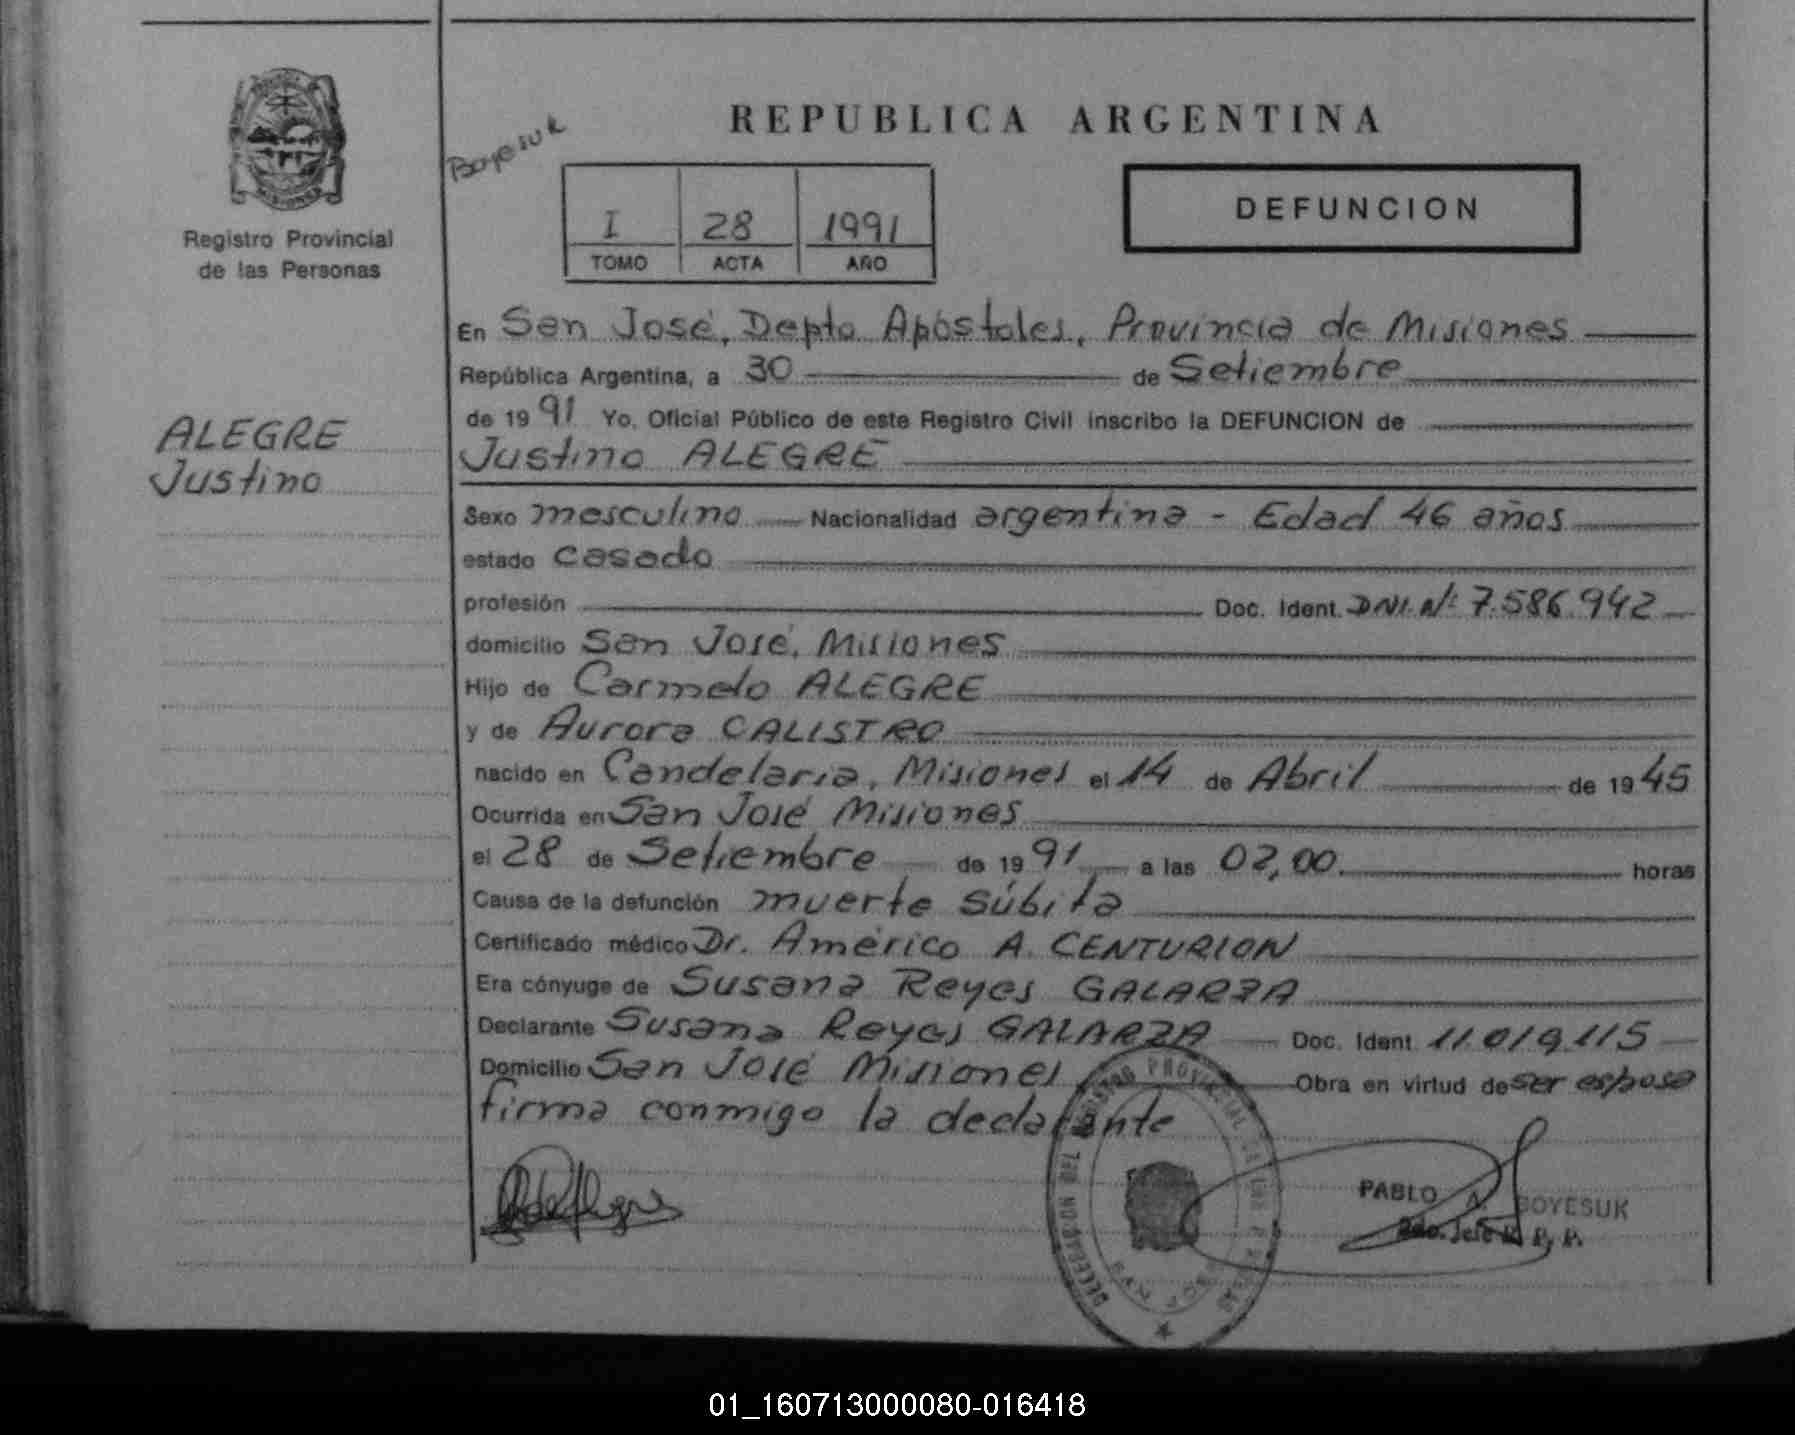 REPUBLICA ARGENTINA
Boyesuk
MISIONES
Registro Provincial
de las Personas
I 28 1991
TOMO ACTA AÑO
DEFUNCION
En San José, Depto Apóstoles, Provincia de Misiones
República Argentina, a 30 de Setiembre
de 1991 Yo, Oficial Público de este Registro Civil inscribo la DEFUNCION de
Justino ALEGRE
ALEGRE
Justino
Sexo masculino Nacionalidad argentina - Edad 46 años
estado casado
profesión Doc. Ident. DNI. Nº 7.586.942
domicilio San José, Misiones
Hijo de Carmelo ALEGRE
y de Aurora CALISTRO
nacido en Candelaria, Misiones el 14 de Abril de 1945
Ocurrida en San José Misiones
el 28 de Setiembre de 1991 a las 02,00. horas
Causa de la defunción muerte súbita
Certificado médico Dr. Américo A. CENTURION
Era cónyuge de Susana Reyes GALARZA
Declarante Susana Reyes GALARZA Doc. Ident 11.019.115
Domicilio San José Misiones Obra en virtud de ser esposa
firma conmigo la declarante
DELEGACION DEL REGISTRO PROVINCIAL DE LAS PERSONAS
PABLO A. BOYESUK
2do. Jefe R. P. P.
01_160713000080-016418